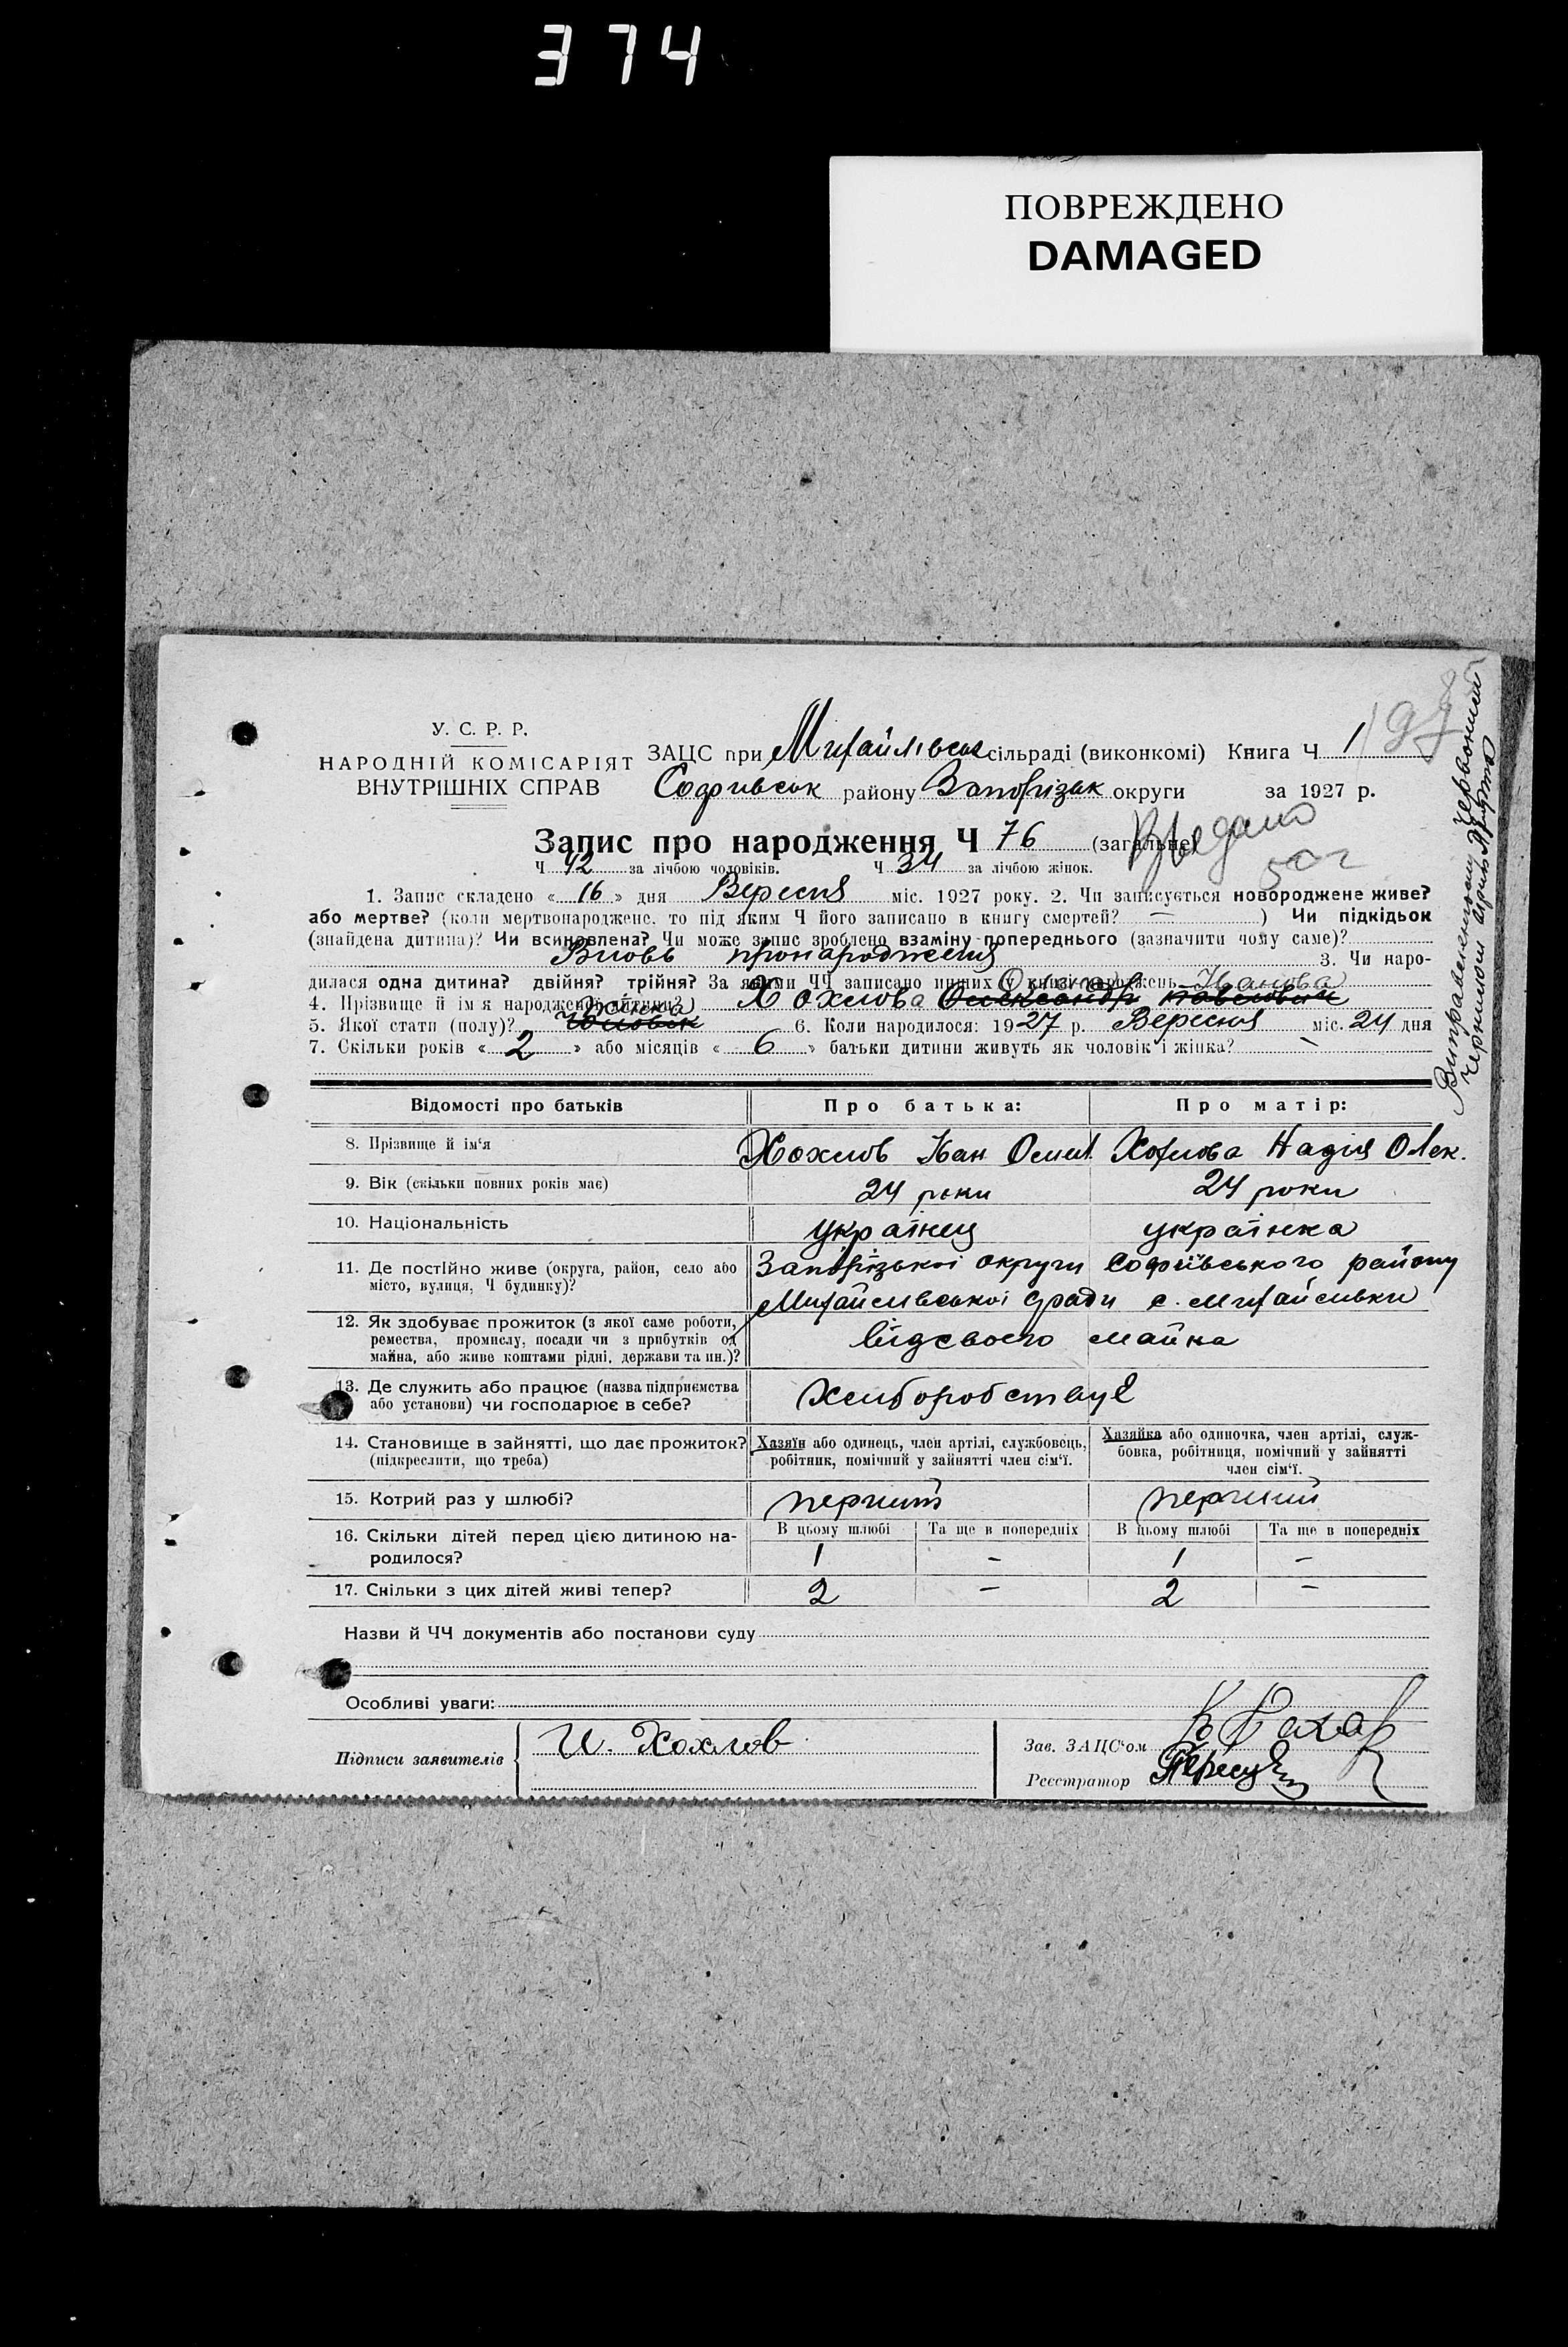 374
ПОВРЕЖДЕНО
DAMAGED
У. С. Р. Р.
НАРОДНІЙ КОМІСАРІЯТ
ВНУТРІШНІХ СПРАВ
ЗАЦС при Михайлівськ сільраді (виконкомі) Книга Ч 1
Софивськ району Запоризьк округи за 1927 р.
Запис про народження Ч 76 (загальне)
Ч 42 за лічбою чоловіків. Ч 34 за лічбою жінок.
1. Запис складено « 16 » дня Вересня міс. 1927 року. 2. Чи записується новороджене живе?
або мертве? (коли мертвонароджене, то під яким Ч його записано в книгу смертей? — ) Чи підкідьок
(знайдена дитина)? Чи всиновлена? Чи може запис зроблено взаміну попереднього (зазначити чому саме)?
Вновь пронародження 3. Чи наро-
дилася одна дитина? двійня? трійня? За якими ЧЧ записано инших у книзі народжень
Іванова
4. Прізвище й ім'я народженої дитини? Хохлова Олександр
Жінка
5. Якої стати (полу)? Чоловік 6. Коли народилося: 1927 р. Вересня міс. 24 дня
7. Скільки років « 2 » або місяців « 6 » батьки дитини живуть як чоловік і жінка? -
Виправленному червонний
чернилом
Відомості про батьків Про батька: Про матір:
8. Прізвище й ім'я Хохлов Іван Хохлова Надія Олек.
9. Вік (скільки повних років має) 24 роки 24 роки
10. Національність українец українка
11. Де постійно живе (округа, район, село або місто, вулиця, Ч будинку)? Запорізької округи Софіївського району
Михайлівської с. Михайлівки
12. Як здобуває прожиток (з якої саме роботи,
ремества, промислу, посади чи з прибутків од
майна, або живе коштами рідні, держави та ин.)? відсвоего майна
13. Де служить або працює (назва підприємства
або установи) чи господарює в себе? Хлиборобствує
14. Становище в зайнятті, що дає прожиток?
(підкреслити, що треба)
Хазяїн або одинець, член артілі, службовець,
робітник, помічний у зайнятті член сім'ї.
Хазяйка або одиночка, член артілі, служ-
бовка, робітниця, помічний у зайнятті
член сім'ї.
15. Котрий раз у шлюбі? перший перший
16. Скільки дітей перед цією дитиною на-
родилося?
В цьому шлюбі Та ще в попередніх В цьому шлюбі Та ще в попередніх
1 - 1 -
17. Скільки з цих дітей живі тепер? 2 - 2 -
Назви й ЧЧ документів або постанови суду
Особливі уваги:
Підписи заявителів И. Хохлов
Зав. ЗАЦС'ом
Реєстратор